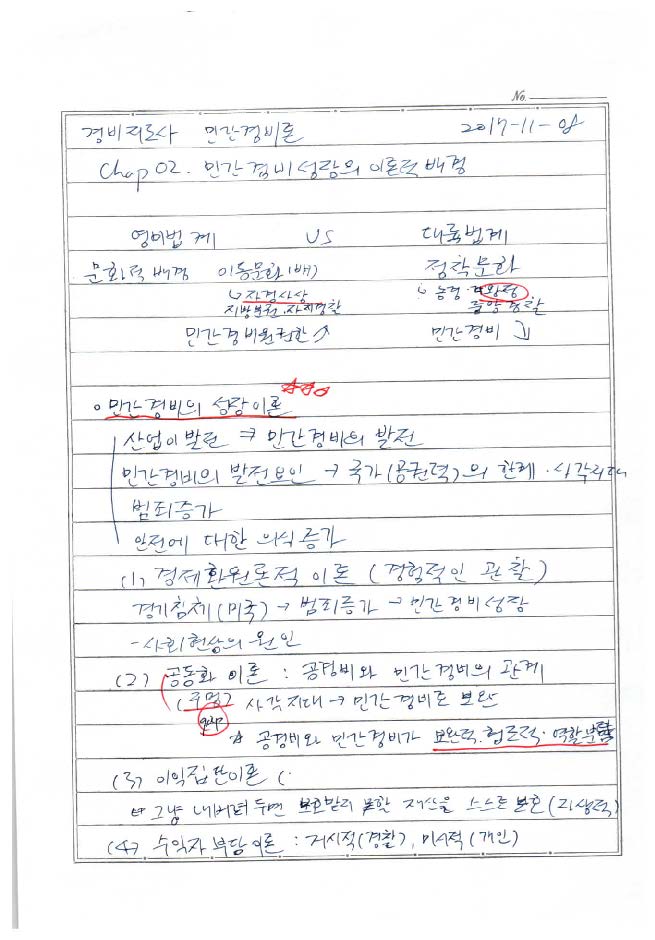 No.
경비지도사 민간경비론 2017-11-08
Chap 02. 민간경비성장의 이론적 배경
영미법계 VS 대륙법계
문화적 배경 이동문화(배) 정착문화
↳ 자경사상 농경· 왕정
지방분권·자치경찰 중앙경찰
민간경비원권한↗ 민간경비 ↓
○ 민간경비의 성장이론 ☆☆☆
산업이 발전 ⇒ 민간경비의 발전
민간경비의 발전요인 → 국가(공권력)의 한계·사각지대
범죄증가
안전에 대한 의식증가
(1) 경제환원론적 이론 (경험적인 관찰)
경기침체(미국) → 범죄증가 → 민간경비성장
- 사회현상의 원인
(2) 공동화 이론 : 공경비와 민간경비의 관계
사각지대 → 민간경비로 보완
☆ 공경비와 민간경비가 보완적·협조적·역할분담
(3) 이익집단이론 (
그냥 내버려 두면 보호받지 못할 재산을 스스로 보호(
(4) 수익자 부담이론 : 거시적(경찰), 미시적(개인)